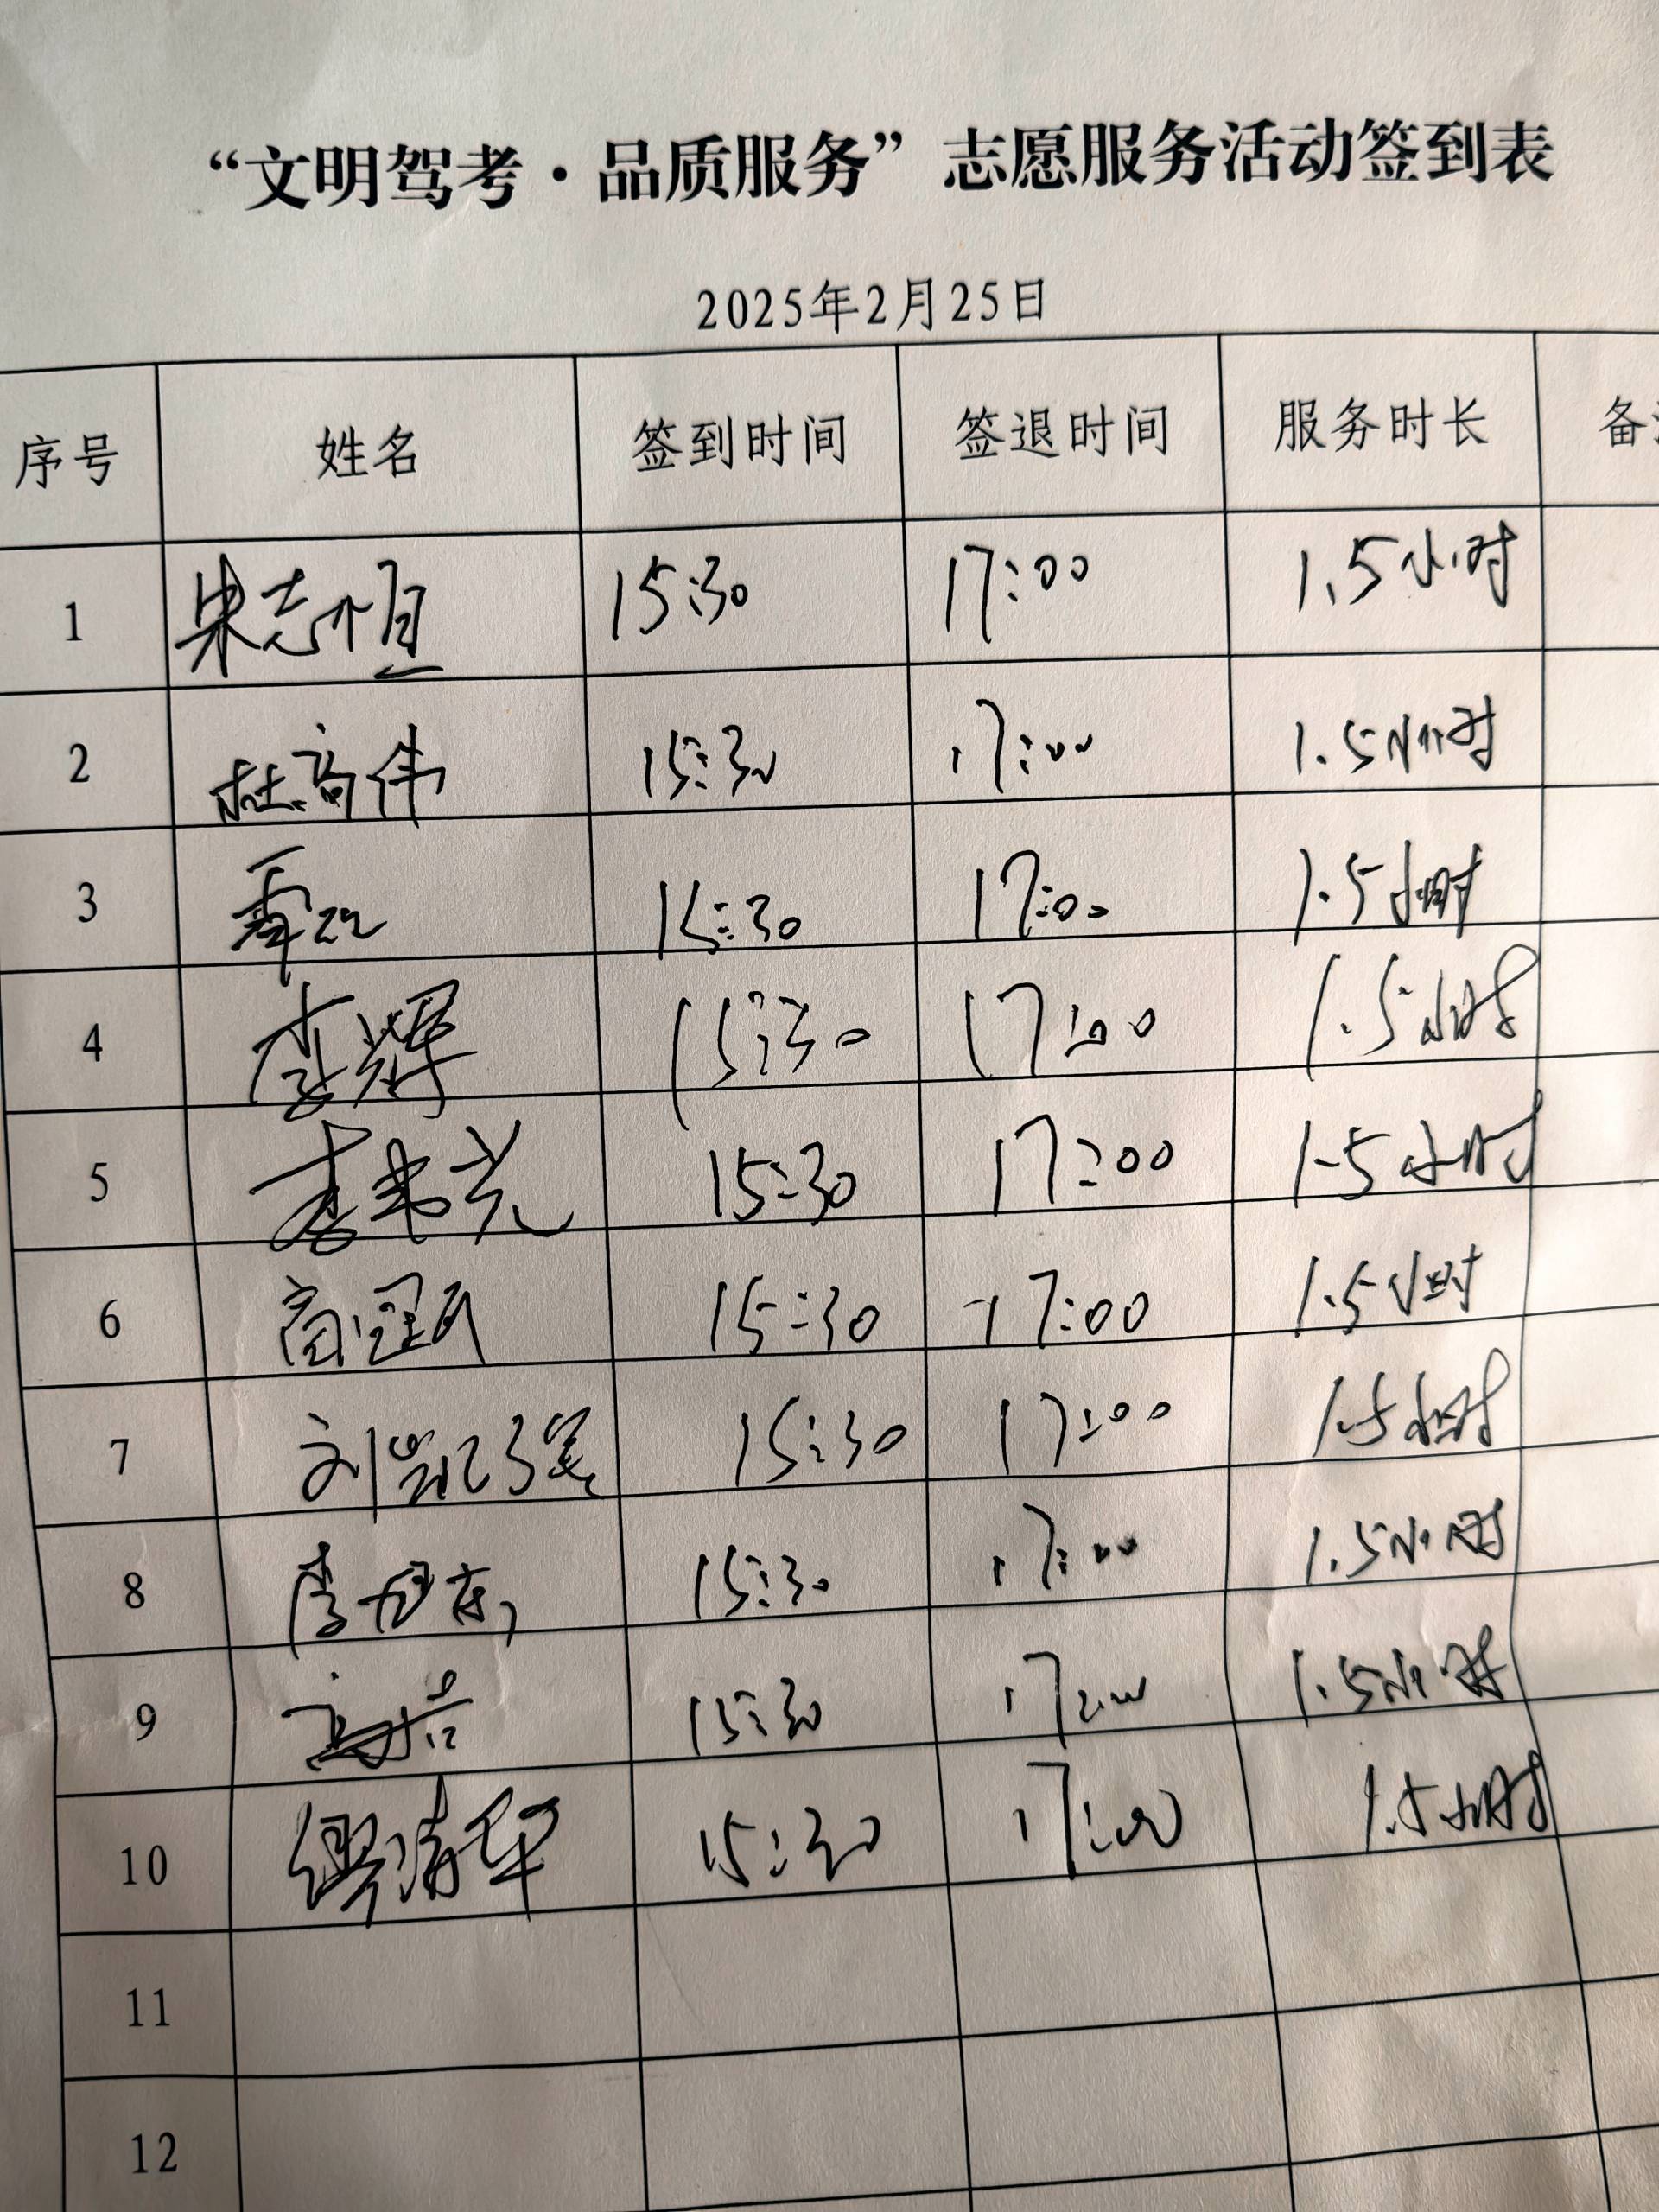 “文明驾考·品质服务”志愿服务活动签到表
2025年2月25日
序号 姓名 签到时间 签退时间 服务时长 备
1 宋志恒 15:30 17:00 1.5小时
2 杜高伟 15:30 17:00 1.5小时
3 15:30 17:00 1.5小时
4 李辉 15:30 17:00 1.5小时
5 15:30 17:00 1.5小时
6 15:30 17:00 1.5小时
7 刘凯强 15:30 17:00 1.5小时
8 15:30 17:00 1.5小时
9 15:30 17:00 1.5小时
10 15:30 17:00 1.5小时
11
12